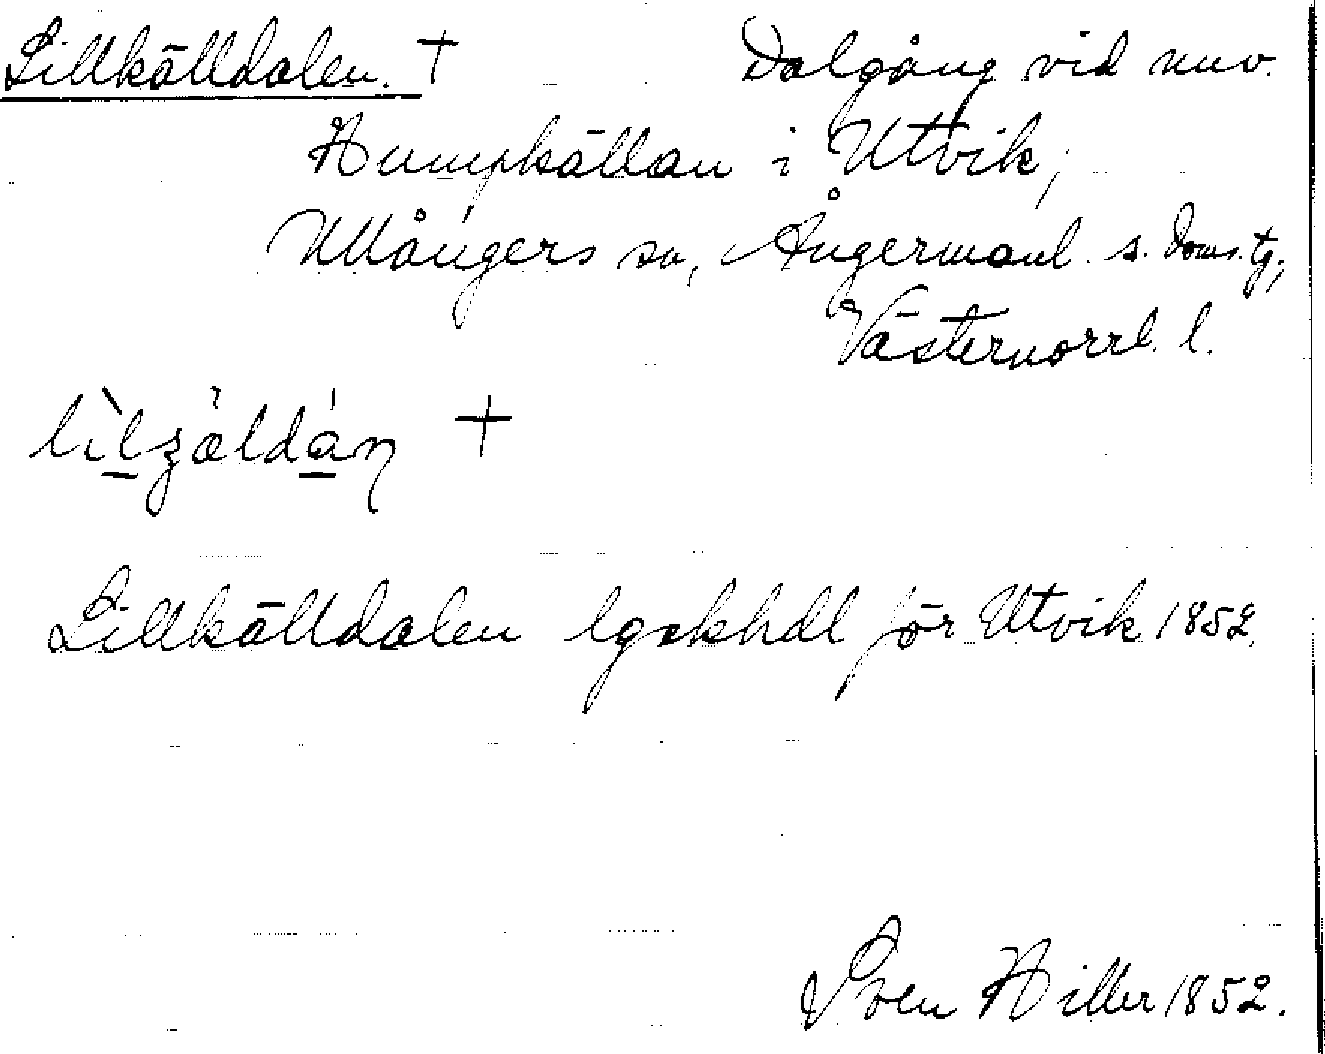 Lillkälldalen. † Dalgång vid nuv.
Humpkällan i Utvik,
Ullångers sn, Ångermanl. s. doms. tg.,
Västernorrl. l.
†
Lillkälldalen lgskhdl för Utvik 1852.
Sven Hiller 1852.